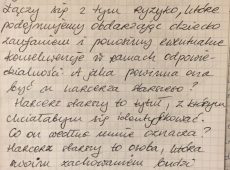 Łączy się z tym ryzyko, które
podejmujemy obdarzając dziecko
zaufaniem i ponosimy ewentualne
konsekwencje w ramach odpowie-
dzialności. A jaka powinna ona
być u harcerza starszego?
Harcerz starszy to tytuł, z którym
chciałabym się identyfikować.
Co on według mnie oznacza?
Harcerz starszy to osoba, która
swoim zachowaniem budzi